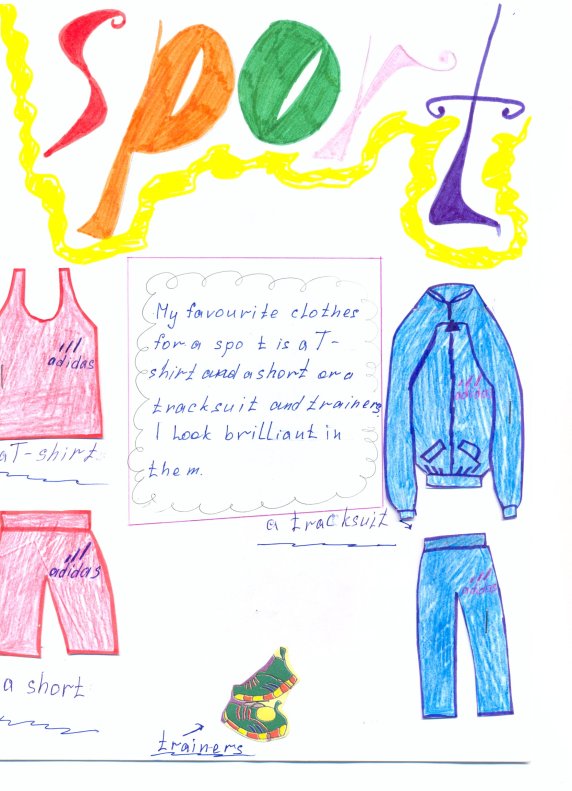 sport
My favourite clothes
for a spo t is a T-
shirt and a short or a
tracksuit and trainers
I look brilliant in
them.
adidas
a T-shirt
adidas
a tracksuit
adidas
a short
adidas
trainers